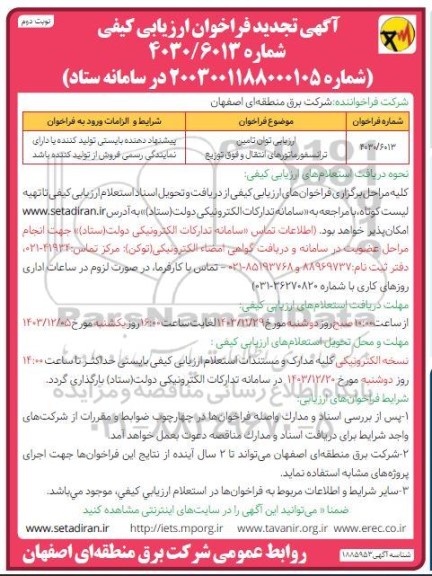 نوبت دوم
آگهی تجدید فراخوان ارزیابی کیفی
شماره ۴۰۳۰/۶۰۱۳
(شماره ۲۰۰۳۰۰۱۱۸۸۰۰۰۱۰۵ در سامانه ستاد)
شرکت فراخواننده: شرکت برق منطقه‌ای اصفهان
شماره فراخوان موضوع فراخوان شرایط و الزامات ورود به فراخوان
۴۰۳۰/۶۰۱۳ ارزیابی توان تامین ترانسفورماتورهای انتقال و فوق توزیع پیشنهاد دهنده بایستی تولید کننده یا دارای نمایندگی رسمی فروش از تولید کننده باشد
نحوه دریافت استعلام‌های ارزیابی کیفی:
کلیه مراحل برگزاری فراخوان‌های ارزیابی کیفی از دریافت و تحویل اسناد استعلام ارزیابی کیفی تا تهیه
لیست کوتاه، با مراجعه به «سامانه تدارکات الکترونیکی دولت (ستاد)» به آدرس www.setadiran.ir
امکان‌پذیر خواهد بود. (اطلاعات تماس «سامانه تدارکات الکترونیکی دولت (ستاد)» جهت انجام
مراحل عضویت در سامانه و دریافت گواهی امضاء الکترونیکی (توکن): مرکز تماس: ۴۱۹۳۴-۰۲۱،
دفتر ثبت نام: ۸۸۹۶۹۷۳۷ و ۸۵۱۹۳۷۶۸-۰۲۱ - تماس با کارفرما، در صورت لزوم در ساعات اداری
روزهای کاری با شماره ۳۶۲۷۰۸۲۰-۰۳۱)
مهلت دریافت استعلام‌های ارزیابی کیفی:
از ساعت ۱۰:۰۰ صبح روز دوشنبه مورخ ۱۴۰۳/۱۱/۲۹ لغایت ساعت ۱۶:۰۰ روز یکشنبه مورخ ۱۴۰۳/۱۲/۰۵
مهلت و محل تحویل استعلام‌های ارزیابی کیفی:
نسخه الکترونیکی کلیه مدارک و مستندات استعلام ارزیابی کیفی بایستی حداکثر تا ساعت ۱۴:۰۰
روز دوشنبه مورخ ۱۴۰۳/۱۲/۲۰ در سامانه تدارکات الکترونیکی دولت (ستاد) بارگذاری گردد.
شرایط فراخوان‌های ارزیابی:
۱-پس از بررسی اسناد و مدارک واصله فراخوان‌ها در چهارچوب ضوابط و مقررات از شرکت‌های
واجد شرایط برای دریافت اسناد و مدارک مناقصه دعوت بعمل خواهد آمد.
۲-شرکت برق منطقه‌ای اصفهان می‌تواند تا ۲ سال آینده از نتایج این فراخوان‌ها جهت اجرای
پروژه‌های مشابه استفاده نماید.
۳-سایر شرایط و اطلاعات مربوط به فراخوان‌ها در استعلام ارزیابی کیفی، موجود می‌باشد.
ضمناً می‌توانید این آگهی را در سایت‌های اینترنتی مشاهده کنید
www.setadiran.ir http://iets.mporg.ir www.tavanir.org.ir www.erec.co.ir
شناسه آگهی ۱۸۸۵۹۵۳
روابط عمومی شرکت برق منطقه‌ای اصفهان